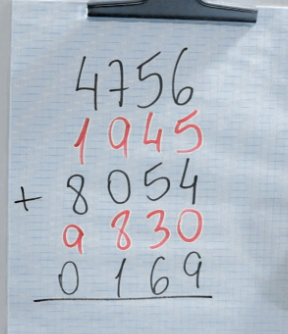 4756
1945
+ 8054
9830
0169